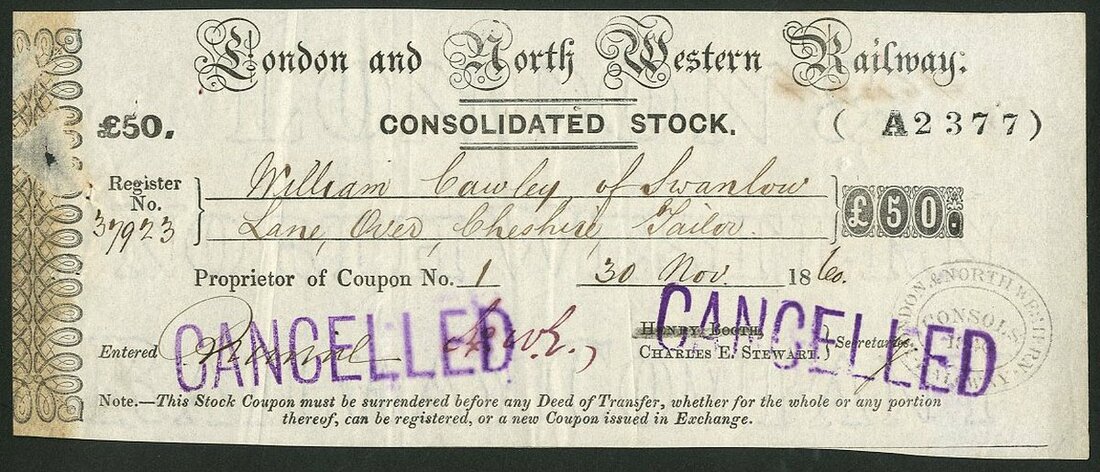 London and North Western Railway:
£50.
CONSOLIDATED STOCK.
(A2377)
Register No. 37923
William Cawley of Swanlow
Lane, Over, Cheshire, Tailor.
£50.
Proprietor of Coupon No. 1 30 Nov. 1860.
CANCELLED
CANCELLED
Entered
HENRY BOOTH.
CHARLES E. STEWART. } Secretaries.
LONDON & NORTH WESTERN RAILWAY
CONSOL
Note.—This Stock Coupon must be surrendered before any Deed of Transfer, whether for the whole or any portion
thereof, can be registered, or a new Coupon issued in Exchange.